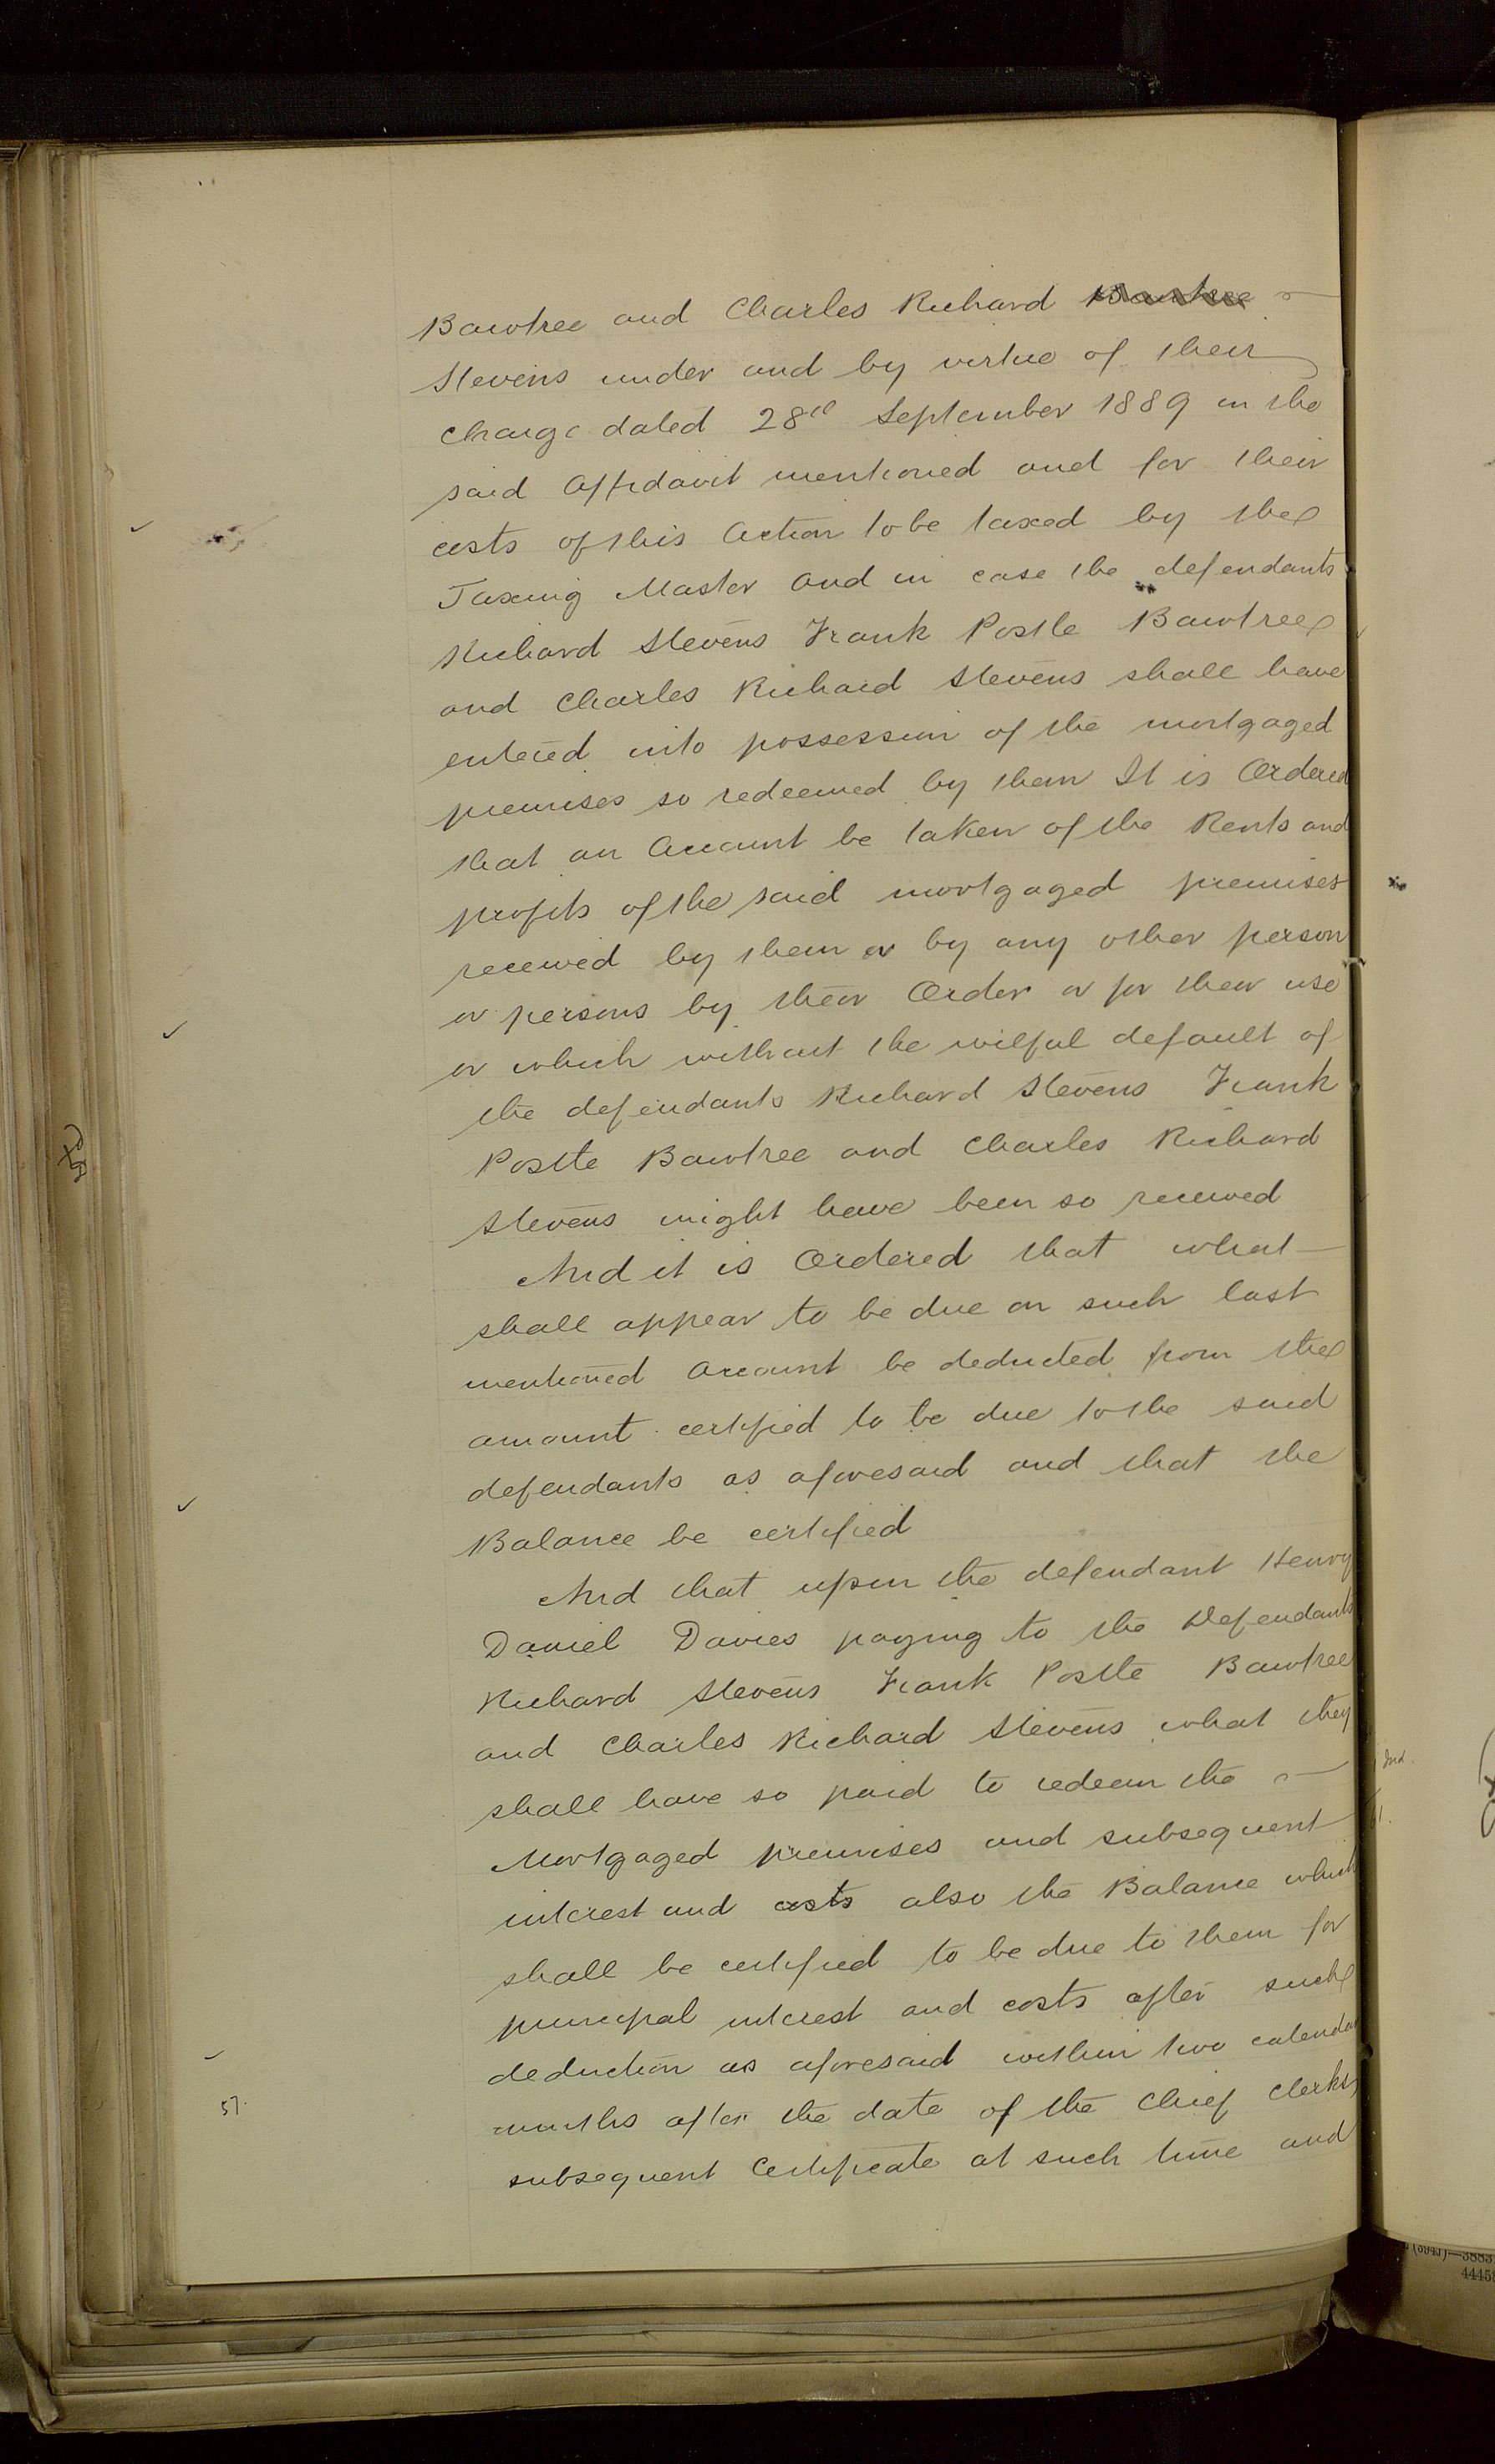 Bawtree and Charles Richard Bawtree
Stevens under and by virtue of their
charge dated 28th September 1889 in the
said Affidavit mentioned and for their
costs of this Action to be taxed by the
Taxing Master and in case the defendants
Richard Stevens Frank Postle Bawtree
and Charles Richard Stevens shall have
entered into possession of the mortgaged
premises so redeemed by them It is Ordered
that an Account be taken of the Rents and
profits of the said mortgaged premises
received by them or by any other person
or persons by their Order or for their use
or which without the wilful default of
the defendants Richard Stevens Frank
Postle Bawtree and Charles Richard
Stevens might have been so received
And it is Ordered that what
shall appear to be due on such last
mentioned Account be deducted from the
amount certified to be due to the said
defendants as aforesaid and that the
Balance be certified
And that upon the defendant Henry
Daniel Davies paying to the Defendants
Richard Stevens Frank Postle Bawtree
and Charles Richard Stevens what they
shall have so paid to redeem the
Mortgaged premises and subsequent
interest and costs also the Balance which
shall be certified to be due to them for
principal interest and costs after such
deduction as aforesaid within two calendar
57.
months after the date of the Chief Clerks
subsequent Certificate at such time and